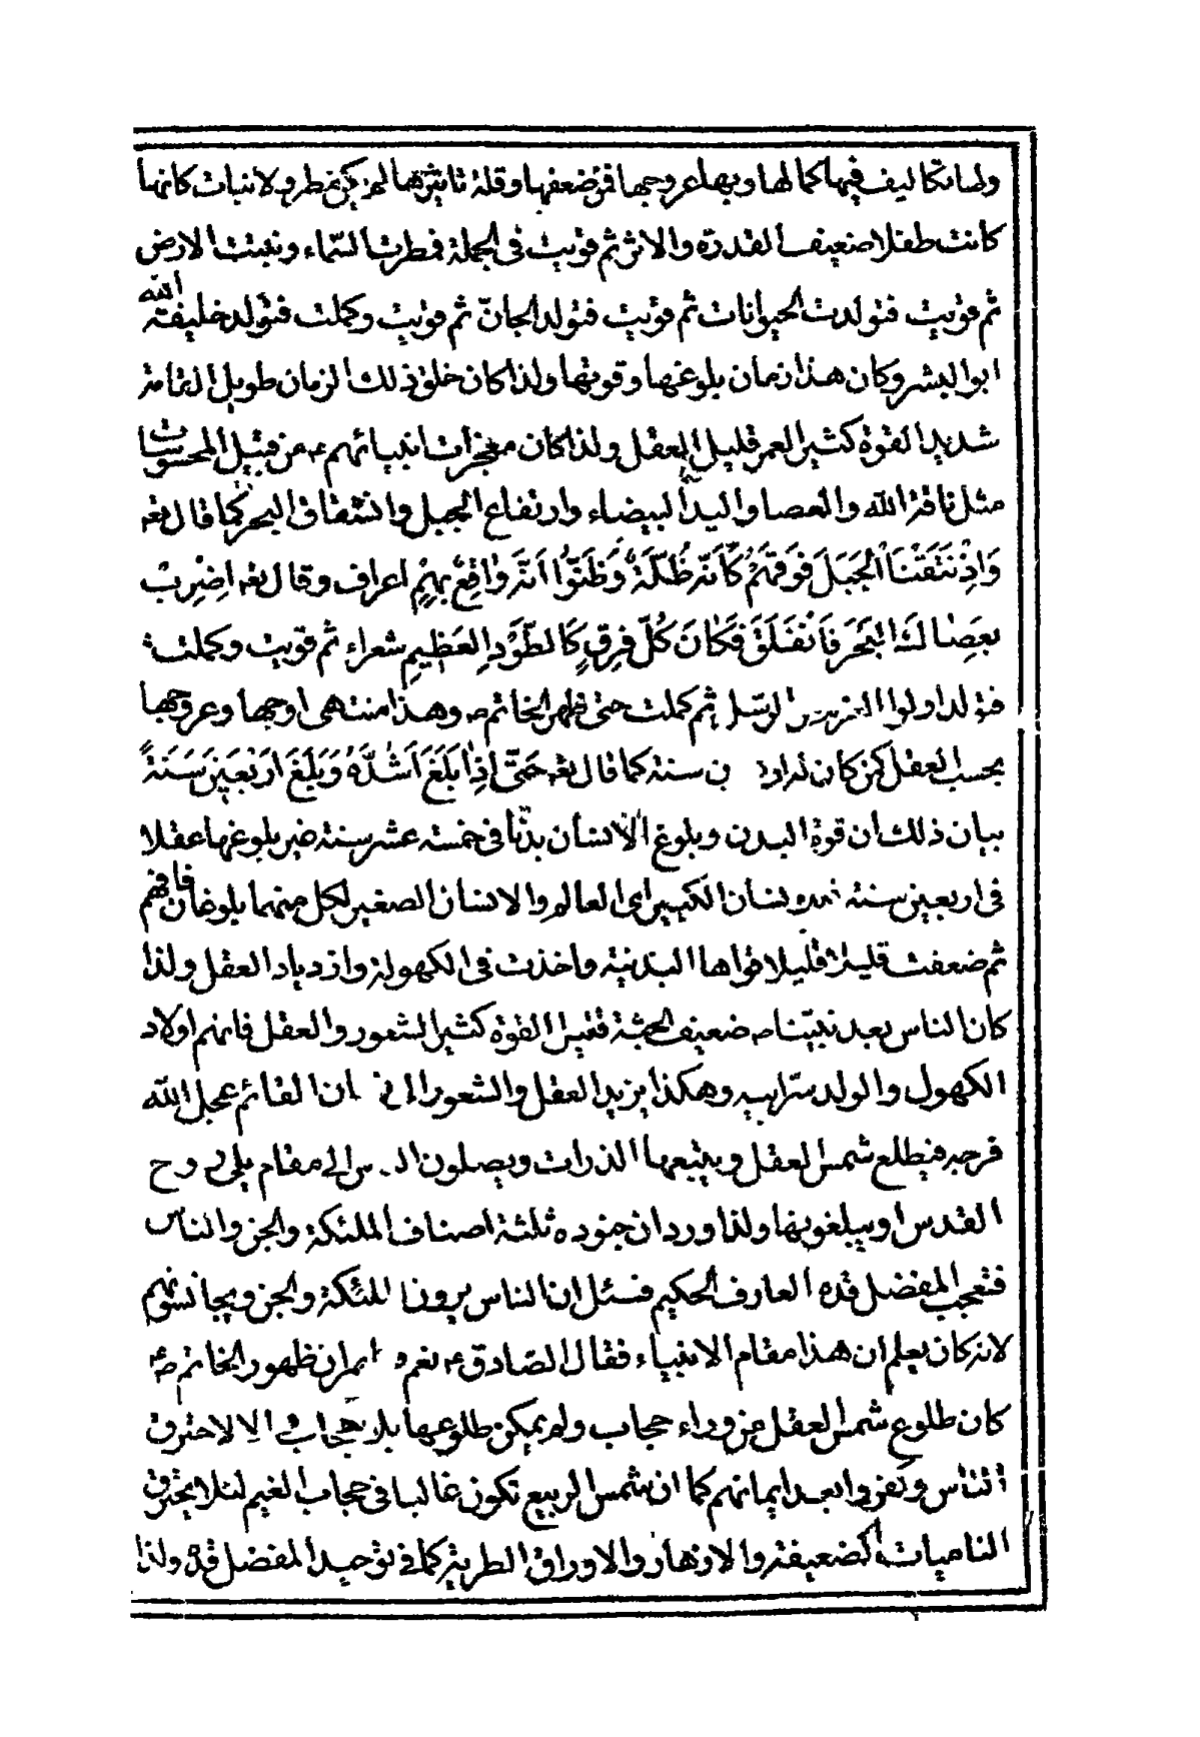 ولها تكاليف فيها كمالها وبها عروجها فمن ضعفها وقلة تاثيرها لم يكن مطر ولا نبات كانها
كانت طفلا ضعيف القدرة والاثر ثم قويت فى الجملة فمطرت السّماء ونبتت الارض
ثم قويت فتولدت الحيوانات ثم قويت فتولد الجانّ ثم قويت وكملت فتولد خليفة الله
ابو البشر وكان هذا زمان بلوغها وقوتها ولذا كان خلق ذلك الزمان طويل القامة
شديد القوة كثير العمر قليل العقل ولذا كان معجزات انبيائهم ع من قبيل المحسوسات
مثل ناقة الله والعصا واليد البيضاء وارتفاع الجبل وانشقاق البحر كما قال تعه
وَاِذْ نَتَقْنَا الْجَبَلَ فَوْقَهُمْ كَاَنَّهُ ظُلَّةٌ وَظَنُّوا اَنَّهُ وَاقِعٌ بِهِمْ اعراف وقال تعه اضْرِبْ
بِعَصَاكَ الْبَحْرَ فَانْفَلَقَ فَكَانَ كُلُّ فِرْقٍ كَالطَّوْدِ الْعَظِيمِ شعراء ثم قويت وكملت
فتولد اولوا العزم من الرّسل ثم كملت حتى ظهر الخاتم ص وهذا منتهى اوجها وعروجها
بحسب العقل كمن كان له سنة كما قال تعه حَتّى اِذَا بَلَغَ اَشُدَّهُ وَبَلَغَ اَرْبَعِينَ سَنَةً
بيان ذلك ان قوة البدن وبلوغ الانسان بدنا فى خمسة عشر سنة غير بلوغها عقلا
فى اربعين سنة الكبير اى العالم والانسان الصغير لكل منهما بلوغان فافهم
ثم ضعفت قليلا قليلا قواها البدنية واخذت فى الكهولة وازدياد العقل ولذا
كان الناس بعد نبيّنا ص ضعيف الجثة فقير القوة كثير الشعور والعقل فانهم اولاد
الكهول والولد سرّ ابيه وهكذا يزيد العقل والشعور الى ان القائم عجل الله
فرجه فيطلع شمس العقل ويتبعها الذرات ويصلون الى مقام روح
القدس او يبلغونها ولذا ورد ان جنوده ثلثة اصناف الملئكة والجن والناس
فتعجب المفضل قده العارف الحكيم فسئل ان الناس يرون الملئكة والجن ويجانسونهم
لانه كان يعلم ان هذا مقام الانبياء فقال الصّادق ع نعم ان ظهور الخاتم ص
كان طلوع شمس العقل من وراء حجاب ولم يمكن طلوعها بلا حجاب الا لاحترق
النّاس وكفروا بعد ايمانهم كما ان شمس الربيع تكون غالبا فى حجاب الغيم لئلا يحترق
الناميات الضعيفة والازهار والاوراق الطرية كما فى توحيد المفضل قده ولذا